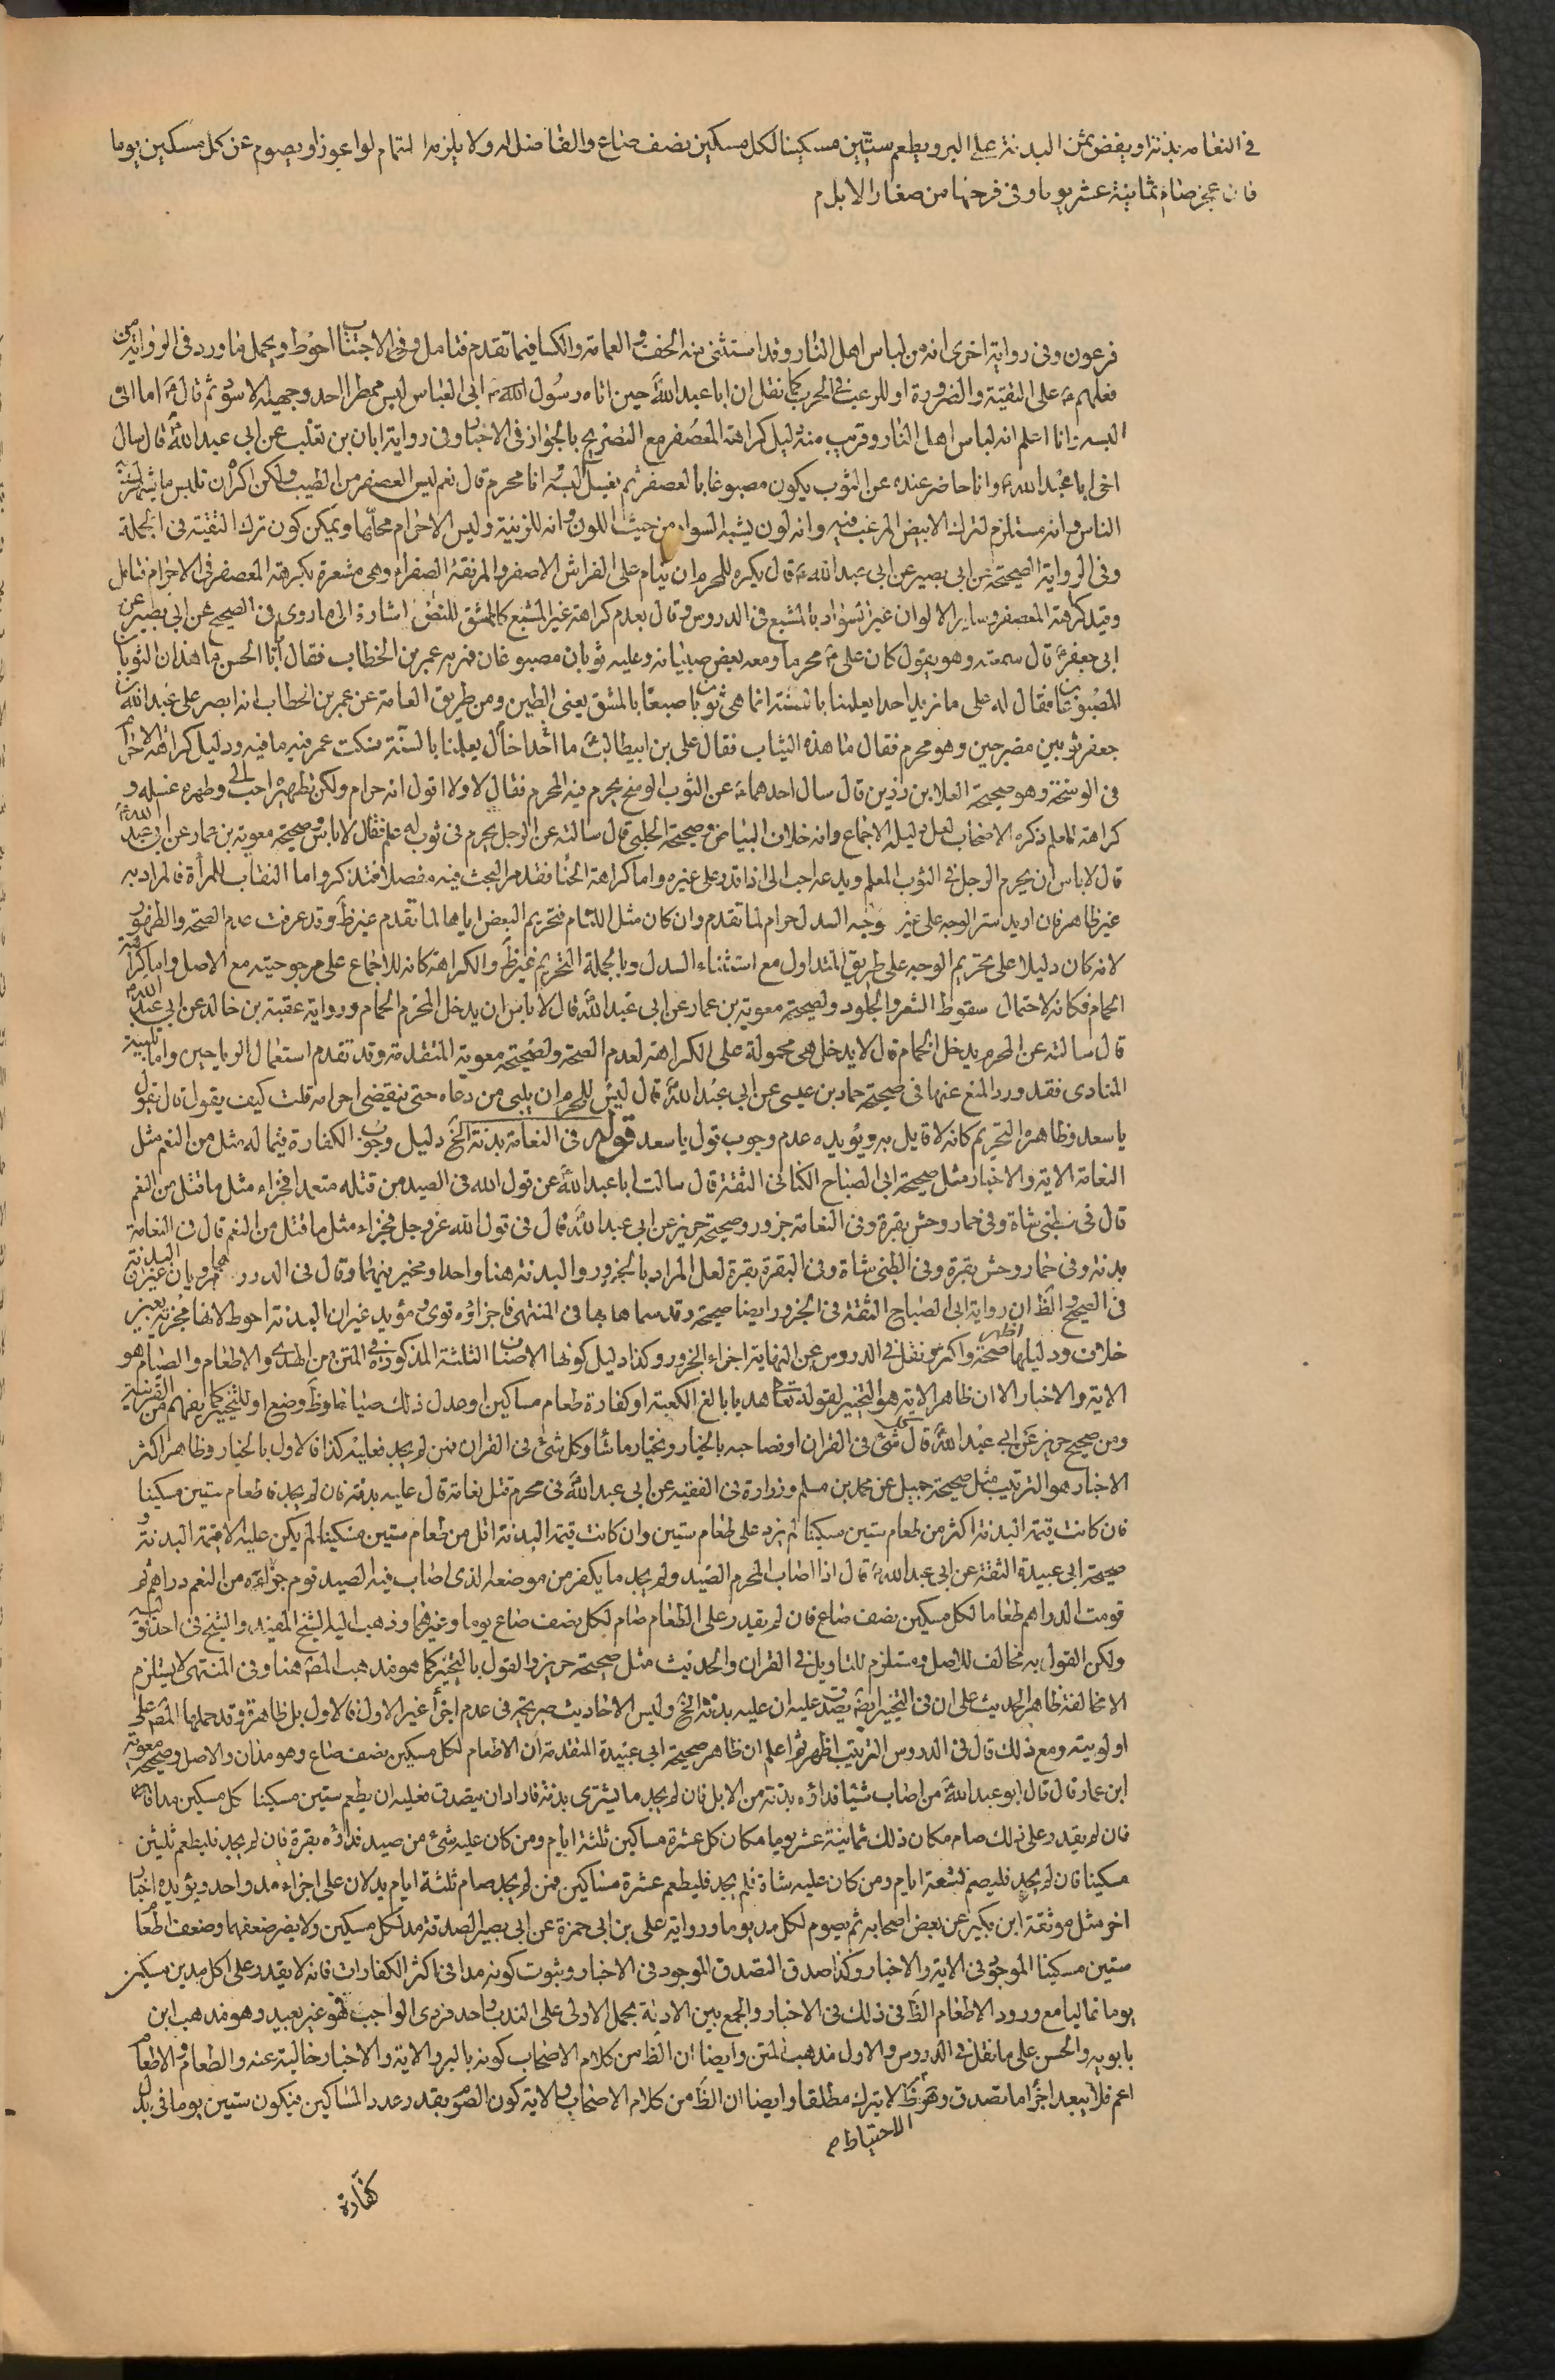 في النعامة بدنة او يفض ثمن البدنة على البر ويطعم ستين مسكينا لكل مسكين نصف صاع والفاضل له ولا يلزمه التمام لو اعوز او يصوم عن كل مسكين يوما
فان عجز صام ثمانية عشر يوما وفي فرخها من صغار الابل م
فرعون وفى رواية اخرى انه من لباس اهل النار وقد استثنى منه الخف والعمامة والكسا فيما تقدم فتامل وفى الاجتناب احوط ويحمل ما ورد فى الرواية من
فعلهم ع على التقية والضرورة او للرعب فى الحرب كما نقل ان ابا عبد الله حين اتاه رسول ابى العباس لبس ممطرا احد وجهيه الاسود ثم قال ع اما انى
البسه وانا اعلم انه لباس اهل النار وقريب منه دليل كراهة المعصفر مع التصريح بالجواز فى الاخبار وفى رواية ابان بن تغلب عن ابى عبد الله قال سال
اخى ابا عبد الله ع وانا حاضر عنده عن الثوب يكون مصبوغا بالعصفر ثم يغسل البسه وانا محرم قال نعم ليس العصفر من الطيب ولكن اكره ان تلبس ما يشهرك
الناس وانه مستلزم لترك الابيض المرغب فيه وانه لون يشبه السواد من حيث اللون وانه للزينة وليس الاحرام محلها ويمكن كون ترك التقية فى الجملة
وفى الرواية الصحيحة عن ابى بصير عن ابى عبد الله ع قال يكره للمحرم ان ينام على الفراش الاصفر والمرفقة الصفراء وهى مشعرة بكراهة المعصفر فى الاحرام فتامل
وقيد كراهة المعصفر وساير الالوان غير السواد بالمشبع فى الدروس وقال بعدم كراهة غير المشبع كالممشق للنص اشارة الى ما روى فى الصحيح عن ابى بصير عن
ابى جعفر ع قال سمعته وهو يقول كان على ع محرما ومعه بعض صبيانه وعليه ثوبان مصبوغان فمر به عمر بن الخطاب فقال يا ابا الحسن ما هذان الثوبان
المصبوغان فقال له على ما نريد احدا يعلمنا بالسنة انما هى ثوبان صبغا بالمشق يعنى الطين ومن طريق العامة عن عمر بن الخطاب انه ابصر على عبد الله بن
جعفر ثوبين مضرجين وهو محرم فقال ما هذه الثياب فقال على بن ابيطالب ما اخال احدا يعلمنا بالسنة فسكت عمر فيه ما فيه ودليل كراهة الاحرام
فى الوسخة وهو صحيحة العلا بن رزين قال سال احدهما ع عن الثوب الوسخ يحرم فيه المحرم فقال لا ولا اقول انه حرام ولكن تطهيره احب الى وطهره غسله و
كراهة المعلم ذكره الاصحاب لعل دليله الاجماع وانه خلاف البياض وصحيحة الحلبى قال سالته عن الرجل يحرم فى ثوب له علم فقال لا باس وصحيحة معوية بن عمار عن ابى عبد الله ع
قال لا باس ان يحرم الرجل فى الثوب المعلم ويدعه احب الى اذا قدر على غيره واما كراهة الحنا فقد مر البحث فيه مفصلا فتذكر واما النقاب للمرأة فالمراد به
غير ظاهر فان اريد ستر الوجه على غير وجه السدل حرام لما تقدم وان كان مثل اللثام فتحريم البعض اياها لما تقدم غير ظ وقد عرفت عدم الصحة والظهور
لانه كان دليلا على تحريم الوجه على طريق المتداول مع استثناء السدل وبالجملة التحريم غير ظ والكراهة كانه للاجماع على مرجوحيته مع الاصل واما كراهة
الحمام فكانه لاحتمال سقوط الشعر والجلود ولصحيحة معوية بن عمار عن ابى عبد الله قال لا باس ان يدخل المحرم الحمام ورواية عقبة بن خالد عن ابى عبد الله ع
قال سالته عن المحرم يدخل الحمام قال لا يدخل هى محمولة على الكراهة لعدم الصحة ولصحيحة معوية المتقدمة وقد تقدم استعمال الرياحين واما تلبية
المنادى فقد ورد المنع عنها فى صحيحة حماد بن عيسى عن ابى عبد الله قال ليس للمحرم ان يلبى من دعاه حتى ينقضى احرامه قلت كيف يقول قال يقول
يا سعد وظاهره التحريم كانه لا قايل به ويؤيده عدم وجوب قول يا سعد قوله فى النعامة بدنة الخ دليل وجوب الكفارة فيما له مثل من النعم مثل
النعامة الاية والاخبار مثل صحيحة ابى الصباح الكنانى الثقة قال سالت ابا عبد الله عن قول الله فى الصيد من قتله متعمدا فجزاء مثل ما قتل من النعم
قال فى الظبى شاة وفى حمار وحش بقرة وفى النعامة جزور وصحيحة حريز عن ابى عبد الله قال فى قول الله عز وجل فجزاء مثل ما قتل من النعم قال فى النعامة
بدنة وفى حمار وحش بقرة وفى الظبى شاة وفى البقرة بقرة لعل المراد بالجزور والبدنة هنا واحد او مخير بينهما وقال فى الدروس هما مرويان غير ان البدنة
فى الصحيح والظ ان رواية ابى الصباح الثقة فى الجزور ايضا صحيحة وقد سماها بها فى المنتهى فاجزاؤه قوى مؤيد غير ان البدنة احوط لانها مجزية بغير
خلاف ودليلها اظهر صحة واكثر ونقل فى الدروس عن النهاية اجزاء الجزور وكذا دليل كونها الاصناف الثلثة المذكورة فى المتن من الهدى والاطعام والصيام هو
الاية والاخبار الا ان ظاهر الاية هو التخيير لقوله تعالى هديا بالغ الكعبة او كفارة طعام مساكين او عدل ذلك صياما وظ وضع او للتخيير كما يفهم من القرينة
ومن صحيح حريز عن ابى عبد الله قال كل شئ فى القران او فصاحبه بالخيار ويختار ما شاء وكل شئ فى القران فمن لم يجد فعليه كذا فالاول بالخيار وظاهر اكثر
الاخبار هو الترتيب مثل صحيحة جميل عن محمد بن مسلم وزرارة فى الفقيه عن ابى عبد الله فى محرم قتل نعامة قال عليه بدنة فان لم يجد فاطعام ستين مسكينا
فان كانت قيمة البدنة اكثر من طعام ستين مسكينا لم يزد على طعام ستين وان كانت قيمة البدنة اقل من طعام ستين مسكينا لم يكن عليه الا قيمة البدنة و
صحيحة ابى عبيدة الثقة عن ابى عبد الله ع قال اذا اصاب المحرم الصيد ولم يجد ما يكفر من موضعه الذى اصاب فيه الصيد قوم جزاؤه من النعم دراهم ثم
قومت الدراهم طعاما لكل مسكين نصف صاع فان لم يقدر على الطعام صام لكل نصف صاع يوما وغيرهما وذهب اليه الشيخ المفيد والشيخ فى احد قوليه
ولكن القول به مخالف للاصل ومستلزم للتاويل فى القران والحديث مثل صحيحة حريز والقول بالتخيير كما هو مذهب المصه هنا وفى المنتهى لا يستلزم
الا مخالفة ظاهر الحديث على ان فى التخيير ايضا يصدق عليه ان عليه بدنة الخ وليس الاحاديث صريحة فى عدم اجزاء غير الاول فالاول بل ظاهرة وقد حملها المصه على
اولويته ومع ذلك قال فى الدروس الترتيب اظهر ثم اعلم ان ظاهر صحيحة ابى عبيدة المتقدمة ان الاطعام لكل مسكين نصف صاع وهو مدان والاصل وصحيحة معوية
ابن عمار قال قال ابو عبد الله من اصاب شيئا فداؤه بدنة من الابل فان لم يجد ما يشترى بدنة فاراد ان يتصدق فعليه ان يطعم ستين مسكينا كل مسكين مدا
فان لم يقدر على ذلك صام مكان ذلك ثمانية عشر يوما مكان كل عشرة مساكين ثلثة ايام ومن كان عليه شئ من صيد فداؤه بقرة فان لم يجد فليطعم ثلثين
مسكينا فان لم يجد فليصم تسعة ايام ومن كان عليه شاة فلم يجد فليطعم عشرة مساكين فمن لم يجد صام ثلثة ايام يدلان على اجزاء مد واحد ويؤيده اخبار
اخر مثل موثقة ابن بكير عن بعض اصحابه ثم يصوم لكل مد يوما ورواية على بن ابى حمزة عن ابى بصير الصدقة مد لكل مسكين ولا يضر ضعفهما وضعف اطعام
ستين مسكينا الموجود فى الاية والاخبار وكذا صدق التصدق الموجود فى الاخبار وثبوت كونه مدا فى اكثر الكفارات فانه لا يقدر على اكل مدين مسكين
يوما غالبا مع ورود الاطعام الظ فى ذلك فى الاخبار والجمع بين الادلة بحمل الاولى على الندب واحد فردى الواجب فهو غير بعيد وهو مذهب ابن
بابويه والحسن على ما نقل فى الدروس والاول مذهب المتن وايضا ان الظ من كلام الاصحاب كونه بالبر والاية والاخبار خالية عنه والطعام والاطعام
اعم فلا يبعد اجزاء ما تصدق وهو ظ لا يترك مطلقا وايضا ان الظ من كلام الاصحاب والاية كون الصوم بقدر عدد المساكين فيكون ستين يوما فى بدل
الاحتياط م
كفارة